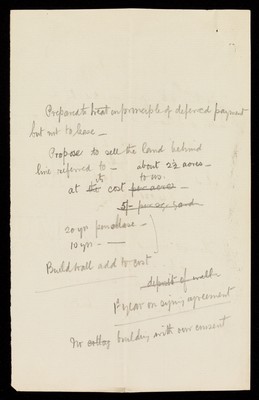 Prepared to treat on principle of deferred payment
but not to lease —
Propose to sell the land behind
line referred to — about 2½ acres —
to us.
at the its cost per acres —
5/- per sq. yard
20 yrs purchase —
10 yrs — —
Build wall add to cost
deposit of wall
1st year on signing agreement
No building with our consent